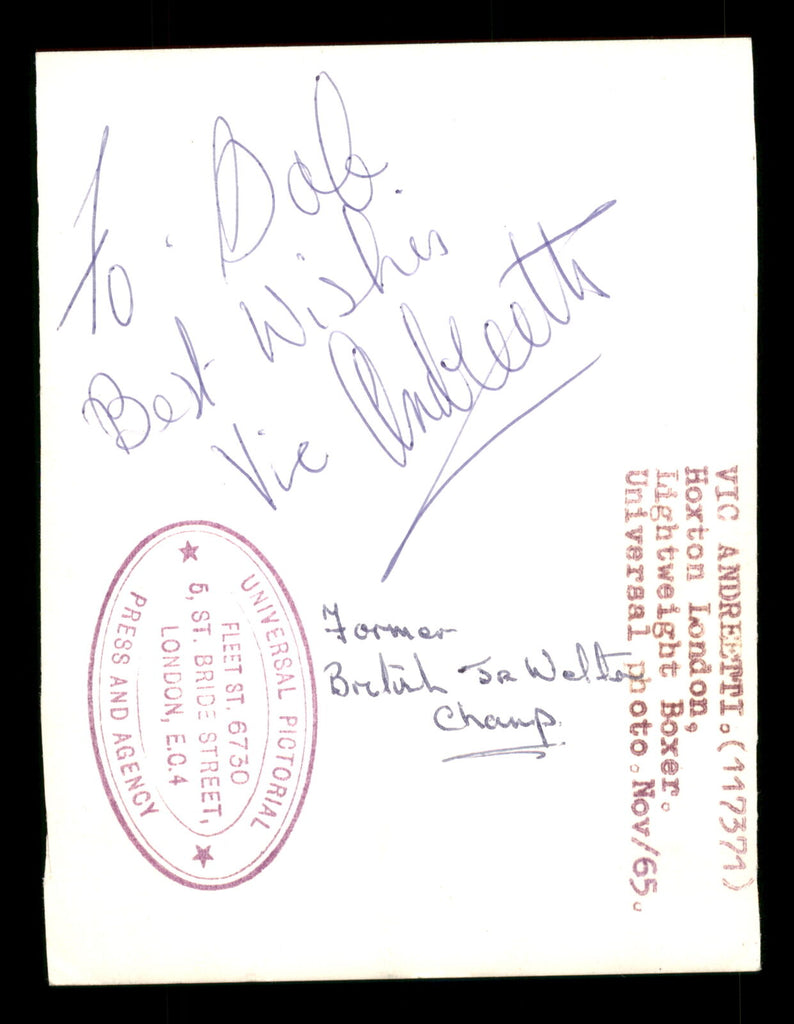 To Bob.
Best Wishes
Vic Andreetti
VIC ANDREETTI.(117371)
Hoxton London,
Lightweight Boxer.
Universal photo.Nov/65.
UNIVERSAL PICTORIAL
FLEET ST. 6730
5, ST. BRIDE STREET,
LONDON, E.C.4
PRESS AND AGENCY
Former
British Jr Welter
Champ.